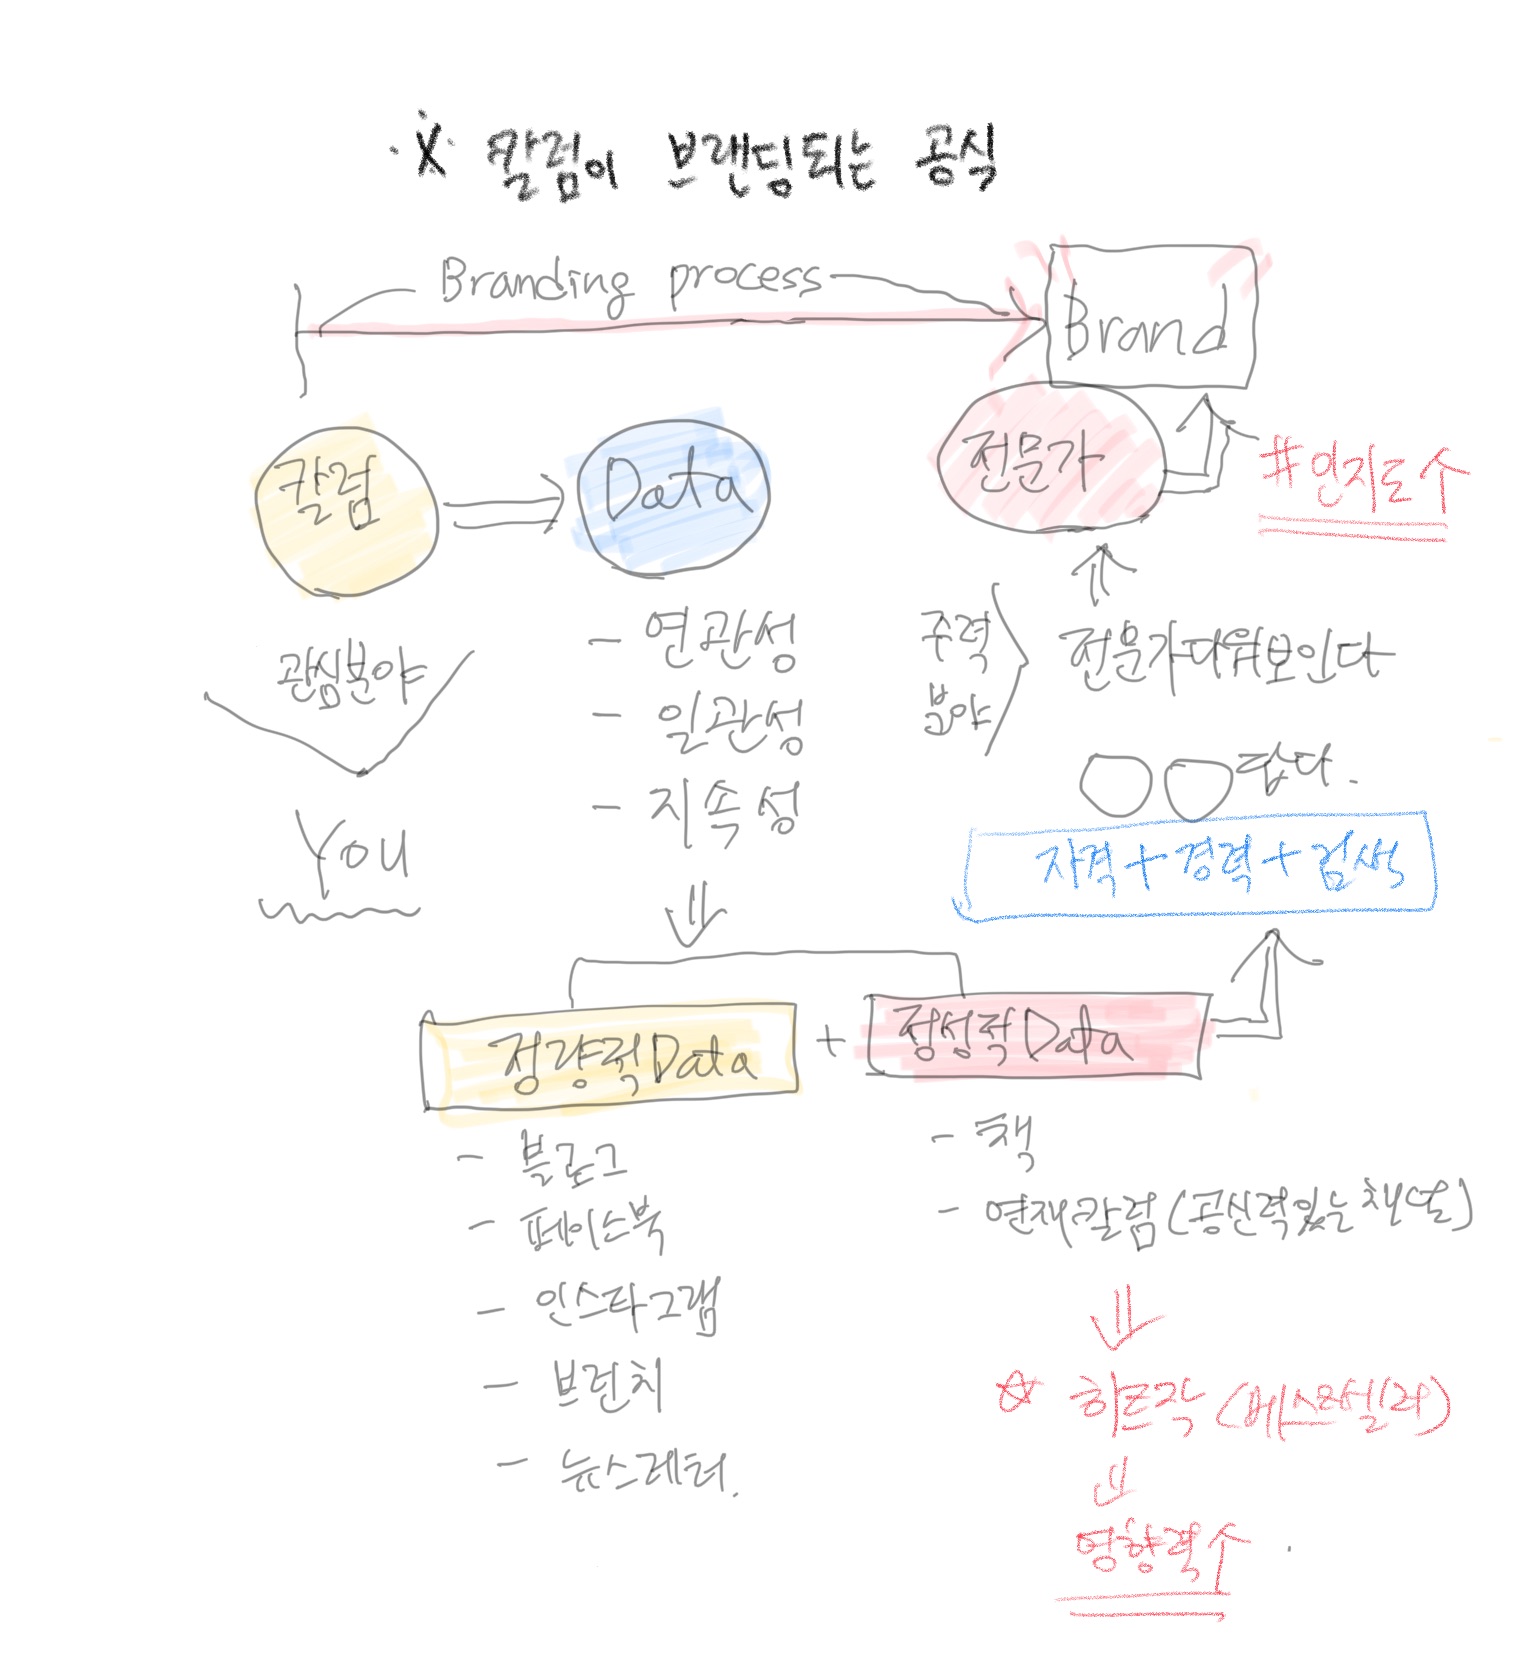 ※ 칼럼이 브랜딩되는 공식
Branding process
Brand
칼럼
Data
전문가
#인지도수
관심분야
You
- 연관성
- 일관성
- 지속성
주력
분야
전문가다워보인다
○○답다.
자격+경력+검색
정량적Data
+
정성적Data
- 블로그
- 페이스북
- 인스타그램
- 브런치
- 뉴스레터.
- 책
- 연재칼럼(공신력있는채널)
☆ 히트작 (베스트셀러)
영향력수